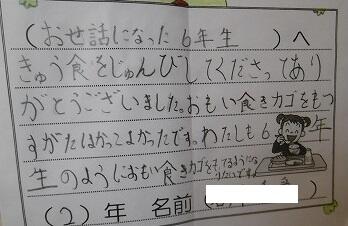 （おせ話になった６年生　）へ
きゅう食をじゅんびしてくださってあり
がとうございました。おもい食きカゴをもつ
すがたはかっこよかったです。わたしも６年
生のようにおもい食きカゴをもてるようにな
りたいです。
（２）年　名前（　）